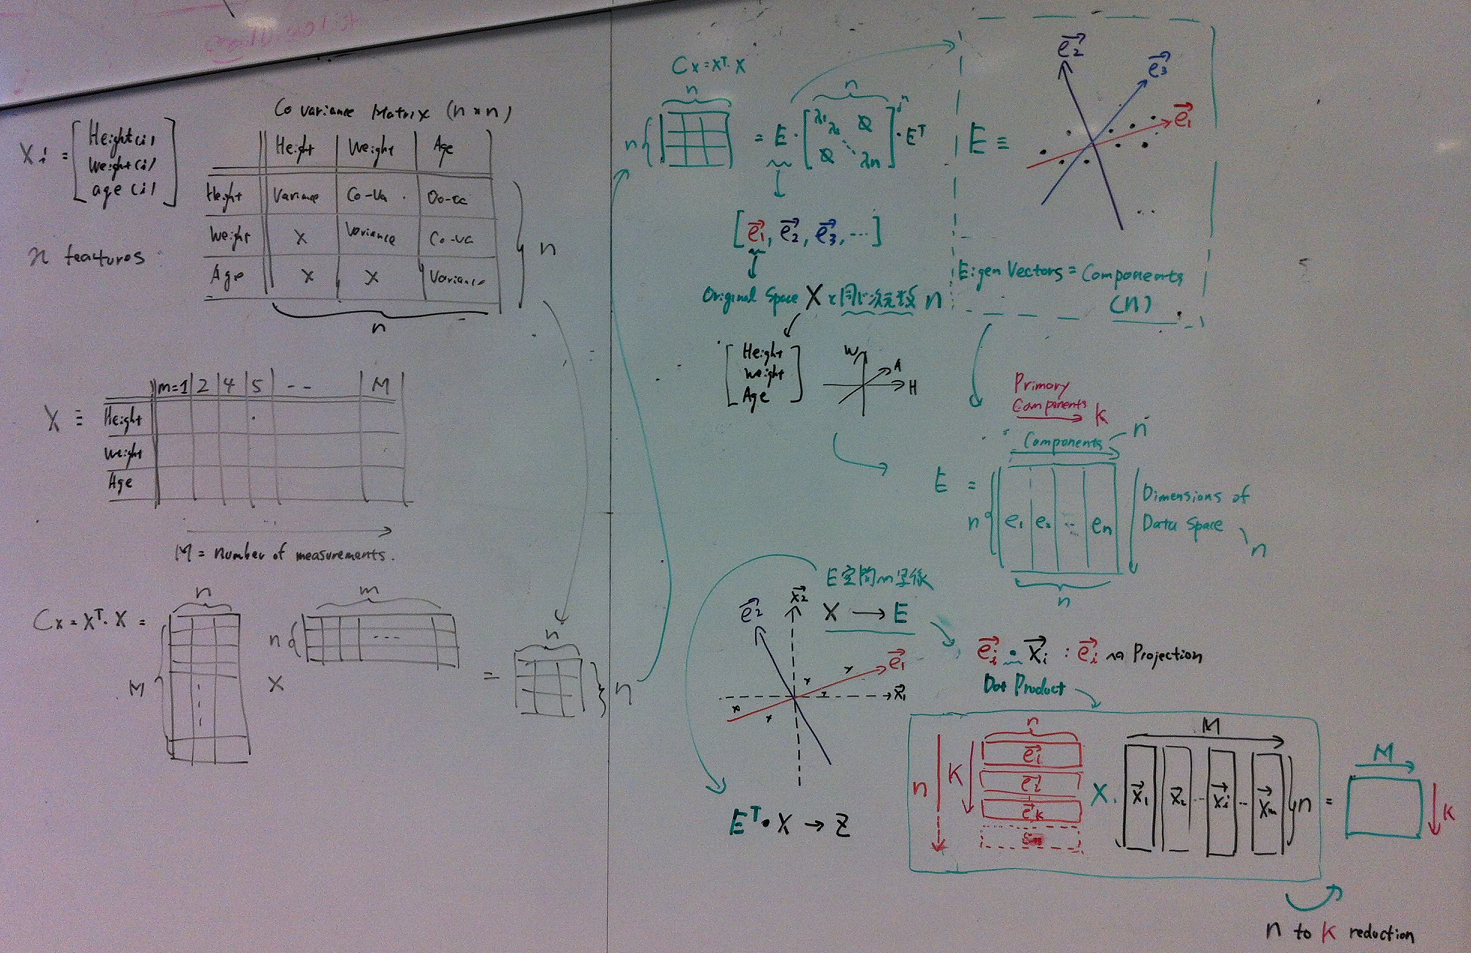 Xi =
Height(i)
Weight(i)
age(i)
n features
Covariance Matrix (n×n)
Height | Weight | Age
Height | Variance | Co-Va
Weight | X | Variance | Co-va
Age | X | X | Variance
n
n
X ≡
m=1 | 2 | 4 | 5 | -- | M
Height
Weight
Age
M = number of measurements.
Cx = X^T · X =
n
M
X
m
n
...
=
n
n
Cx = X^T · X
n
n
= E ·
n
λ1
λ2
λn
· E^T
[e1, e2, e3, ...]
Original Space X と同じ次元数 n
Height
Weight
Age
W
A
H
E ≡
e2
e3
e1
...
Eigen Vectors = Components
(n)
Primary
Components
k
Components
n
E =
n
e1 e2 ... en
n
Dimensions of
Data Space
n
X → E
e2
x2
e1
x1
ei · xi : ei への Projection
Dot Product
E^T · X → Z
n
k
n
e1
e2
ek
X
M
x1 x2 ... xi ... xm
n
=
M
k
n to k reduction